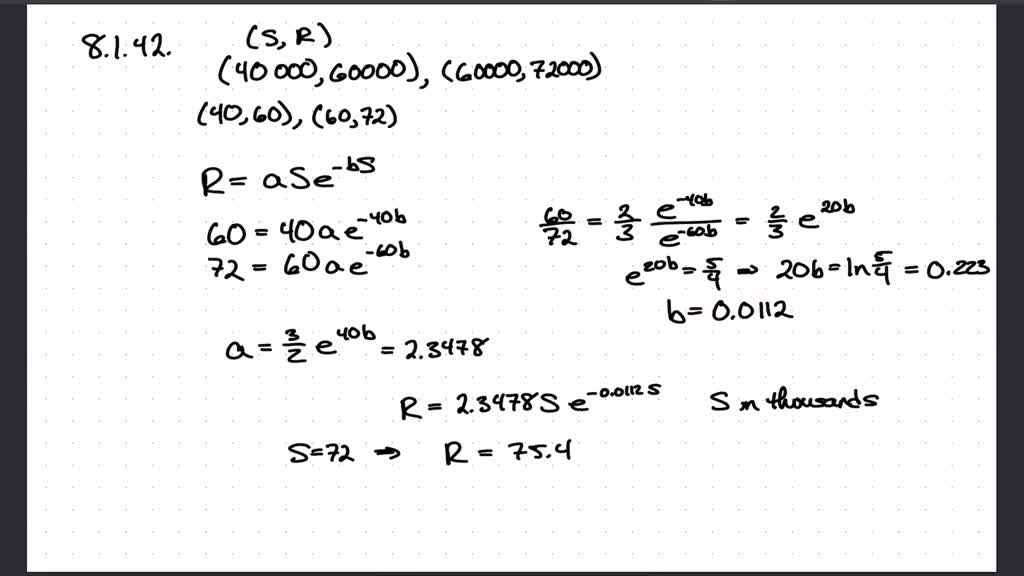 8.1.42. (S, R)
(40 000, 60000), (60000, 72000)
(40, 60), (60, 72)
R = aSe^{-bS}
60 = 40ae^{-40b}
72 = 60ae^{-60b}
60/72 = 2/3 e^{-40b}/e^{-60b} = 2/3 e^{20b}
e^{20b} = 5/4 → 20b = ln 5/4 = 0.223
b = 0.0112
a = 3/2 e^{40b} = 2.3478
R = 2.3478S e^{-0.0112S} S in thousands
S=72 → R = 75.4